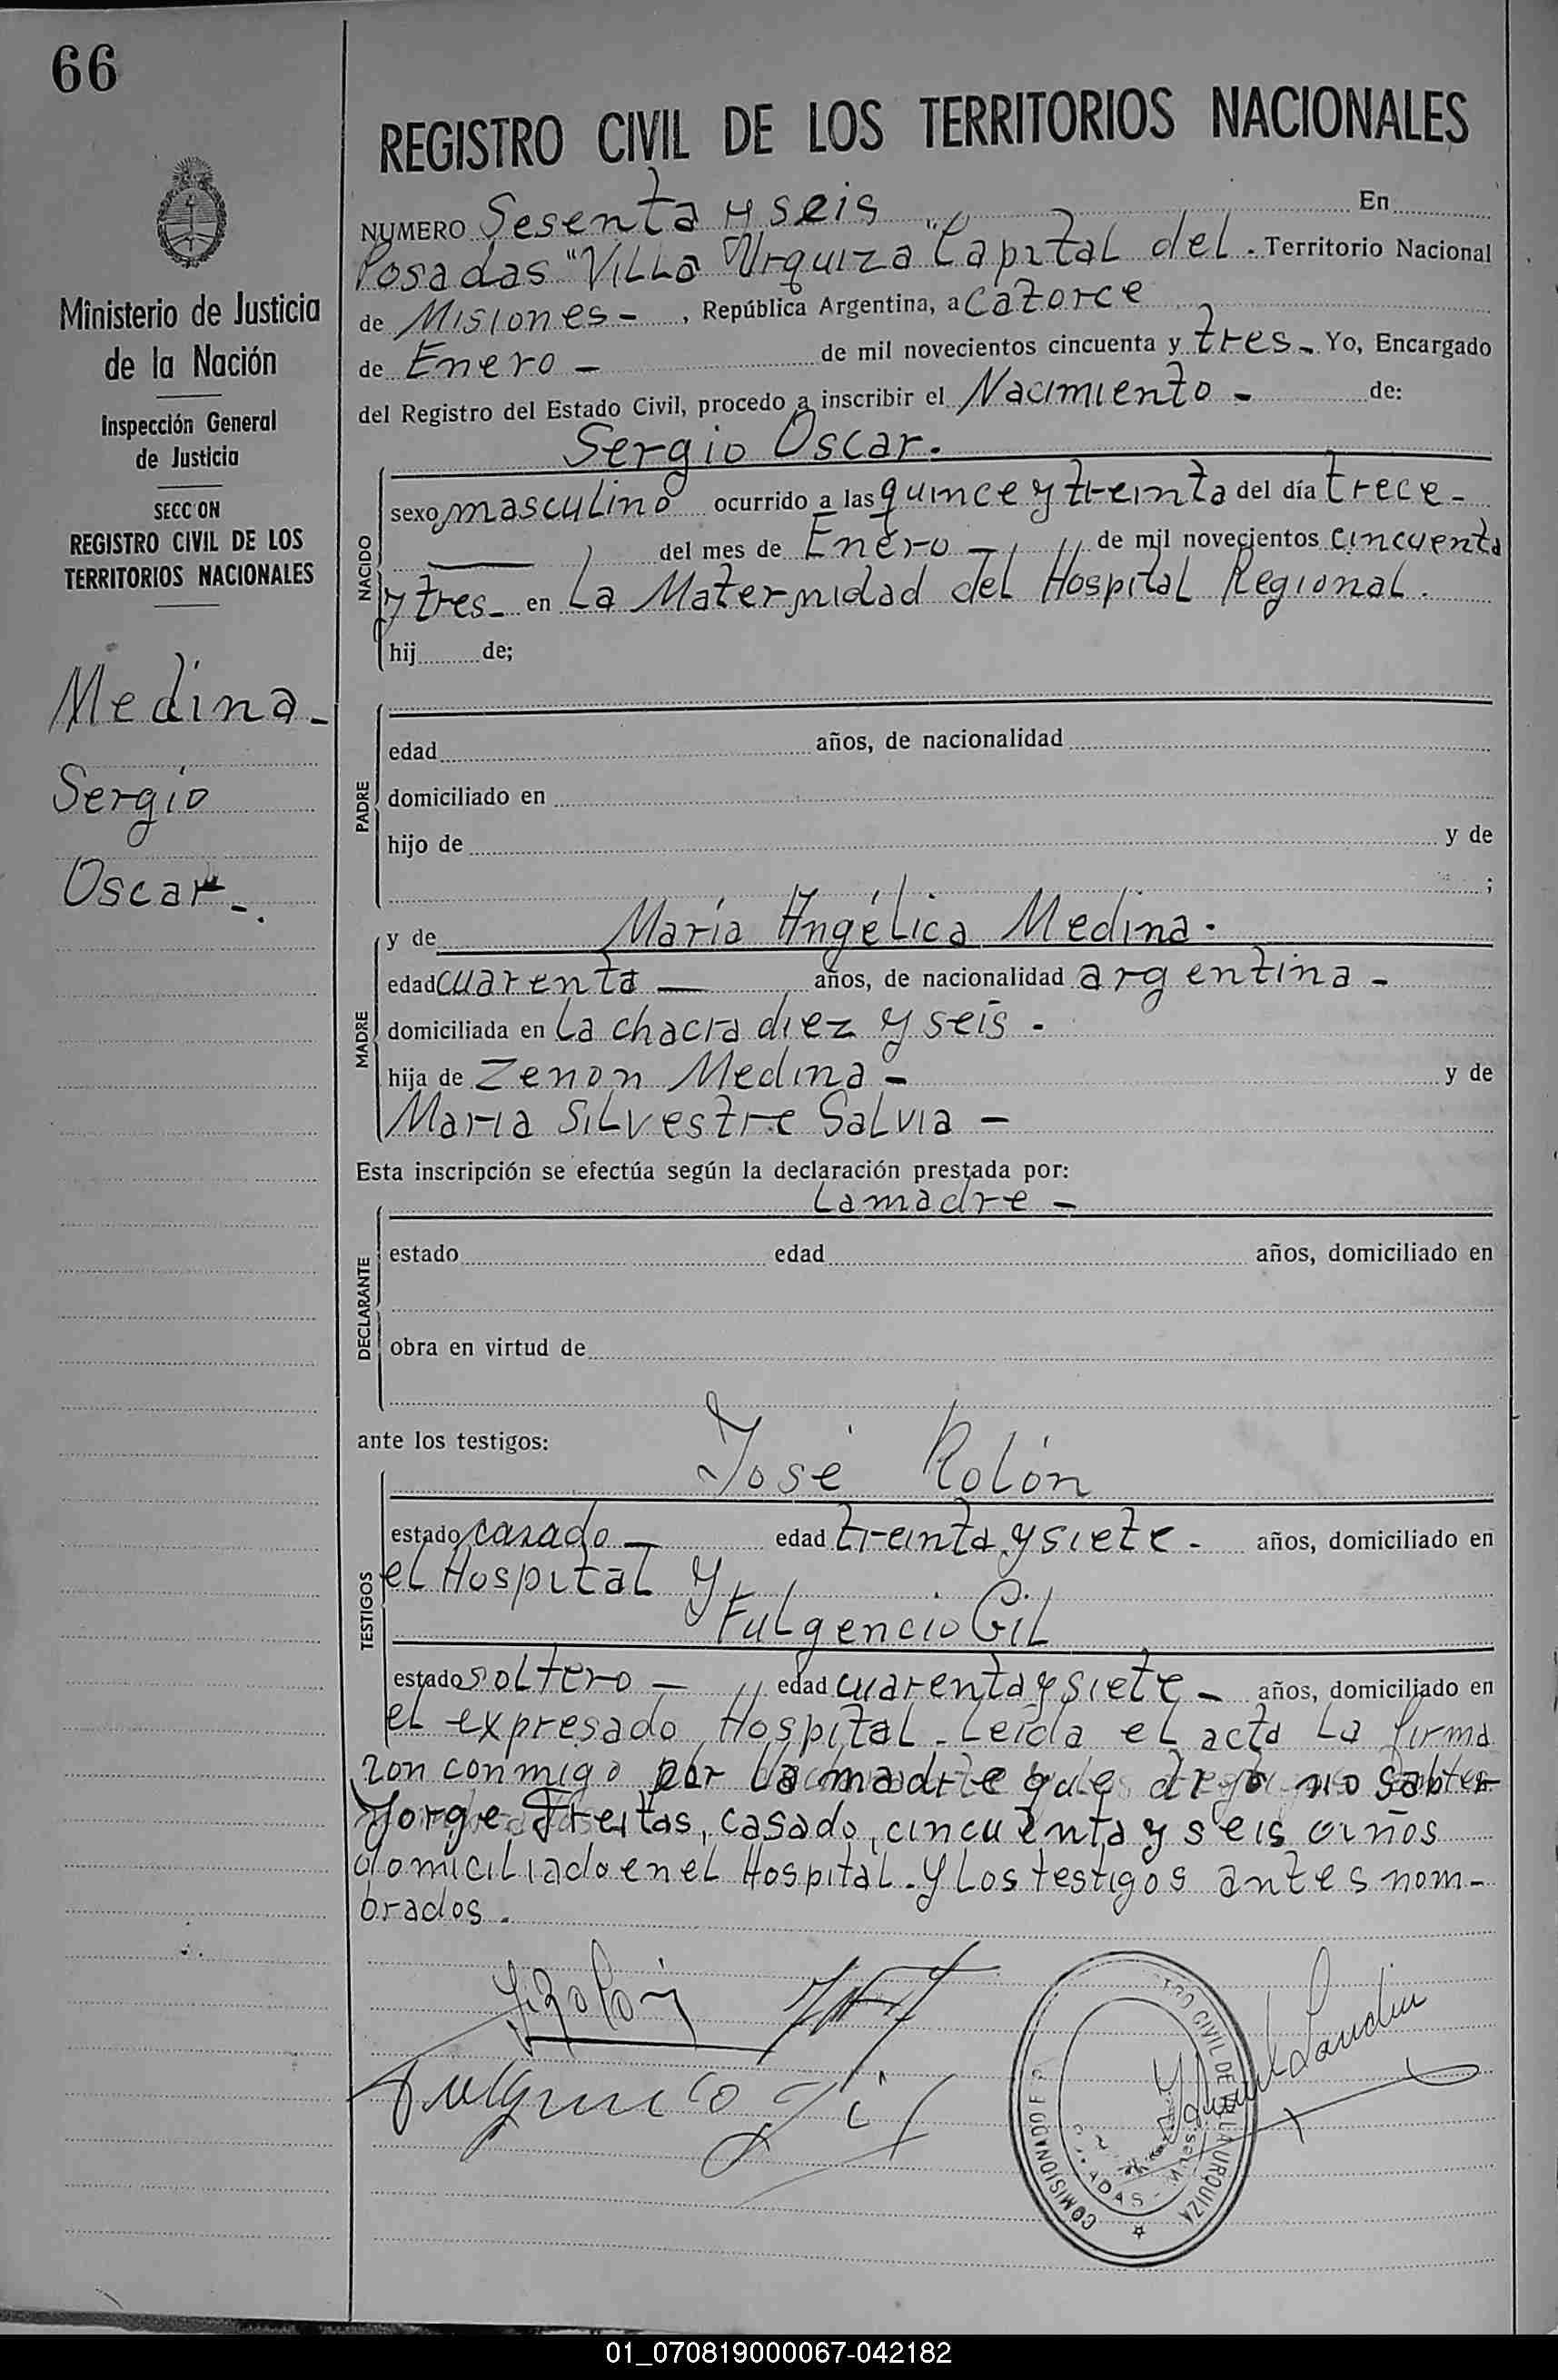 66
Ministerio de Justicia
de la Nación
Inspección General
de Justicia
SECC ON
REGISTRO CIVIL DE LOS
TERRITORIOS NACIONALES
Medina -
Sergio
Oscar -.
REGISTRO CIVIL DE LOS TERRITORIOS NACIONALES
NUMERO Sesenta y seis En
Posadas "Villa Urquiza" Capital del. Territorio Nacional
de Misiones - , República Argentina, a catorce
de Enero - de mil novecientos cincuenta y tres - Yo, Encargado
del Registro del Estado Civil, procedo a inscribir el Nacimiento - de:
Sergio Oscar.
NACIDO
sexo masculino ocurrido a las quince y treinta del día trece -
del mes de Enero - de mil novecientos cincuenta
y tres - en La Maternidad del Hospital Regional.
hij de;
PADRE
edad años, de nacionalidad
domiciliado en
hijo de y de
;
y de María Angélica Medina.
MADRE
edad cuarenta — años, de nacionalidad argentina -
domiciliada en La chacra diez y seis -
hija de Zenon Medina - y de
Maria Silvestre Salvia -
Esta inscripción se efectúa según la declaración prestada por:
La madre -
DECLARANTE
estado edad años, domiciliado en
obra en virtud de
ante los testigos:
José Rolón
TESTIGOS
estado casado - edad treinta y siete - años, domiciliado en
el Hospital y
Fulgencio Gil
estado soltero - edad cuarenta y siete - años, domiciliado en
el expresado Hospital - Leída el acta la firma
ron conmigo por la madre que dijo no saber
Jorge Freitas, casado, cincuenta y seis años
domiciliado en el Hospital. y los testigos antes nom-
brados.
J. Rolón
Fulgencio Gil
COMISIONADO
CIVIL DE VILLA URQUIZA
01_070819000067-042182